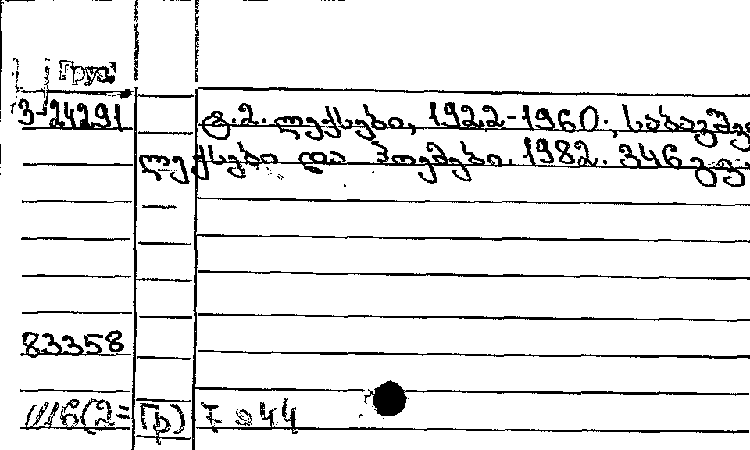 Груз.
3-24291
ტ.2. ლექსები, 1922-1960; საბავშვ
ლექსები და პოემები. 1982. 346 გვ.
83358
Ш6(2=Гр) 7 მ44